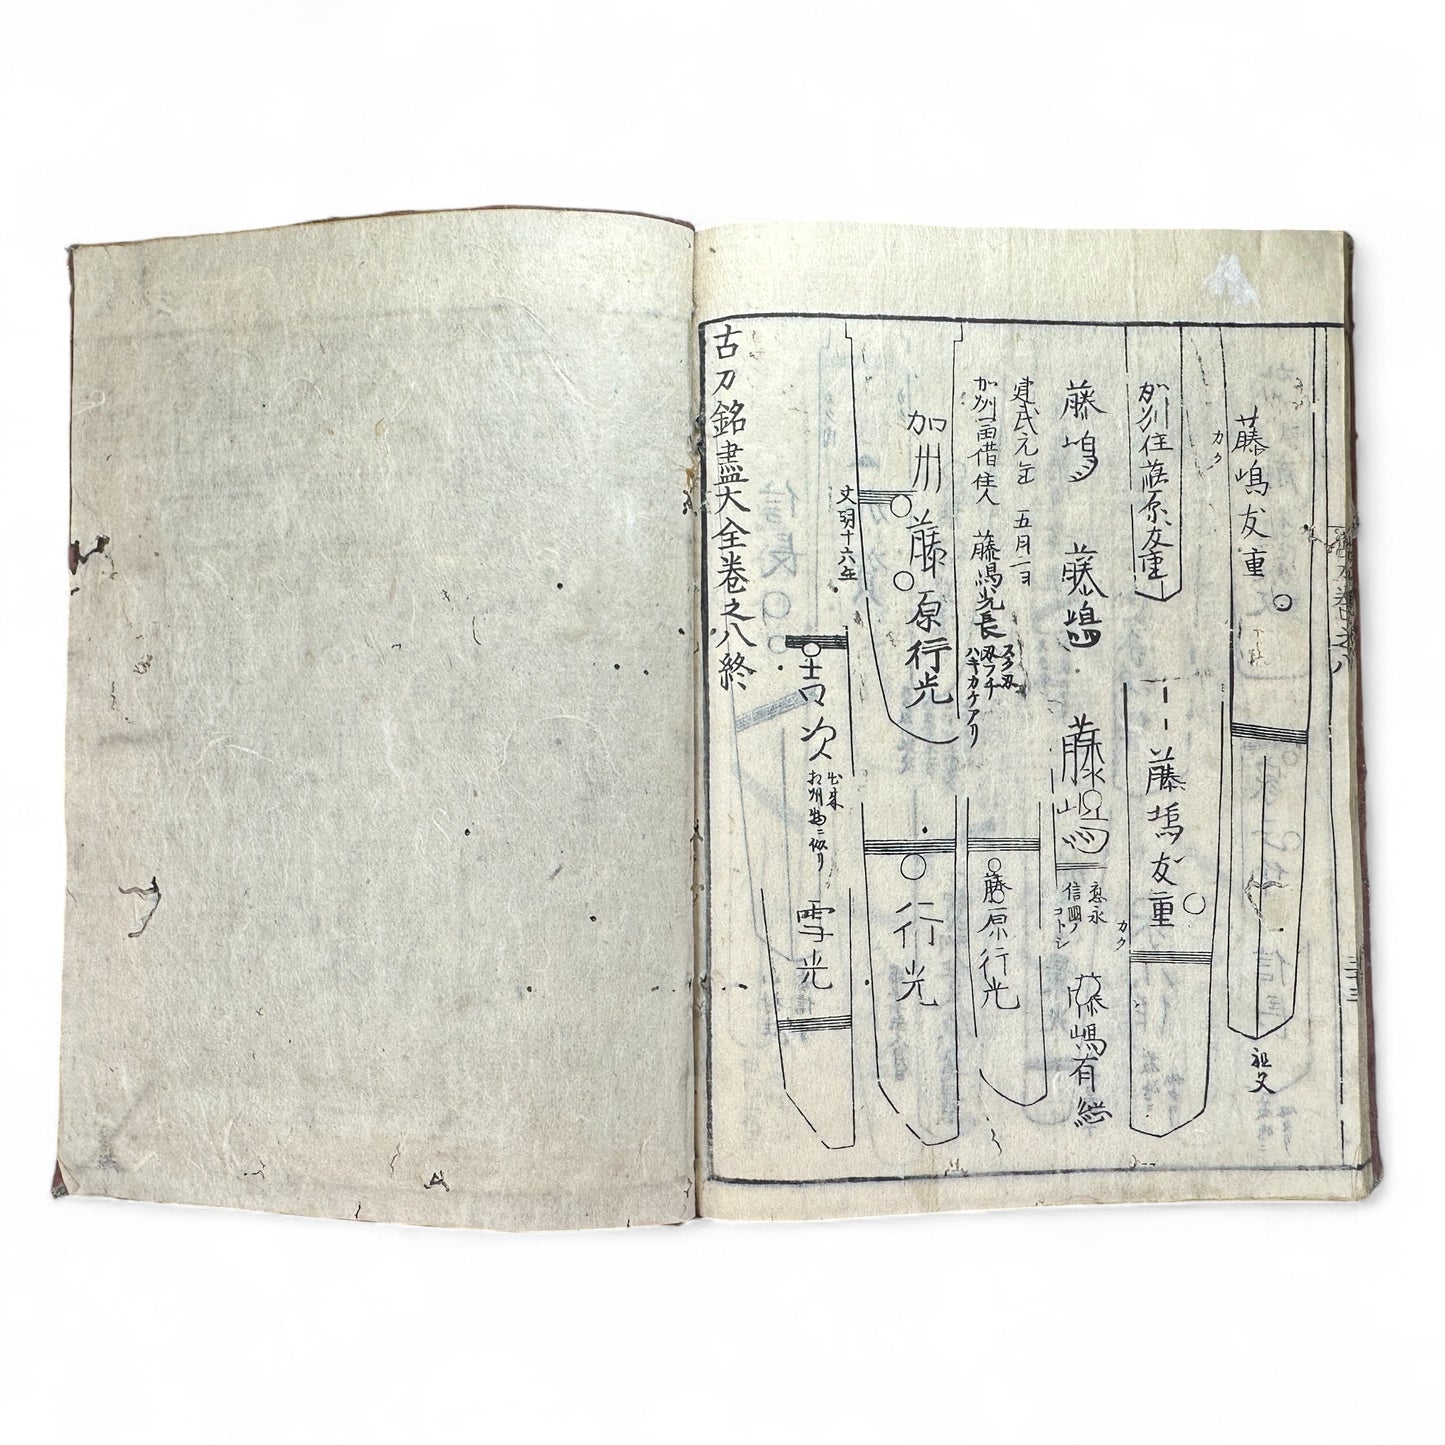 藤嶋友重
カク
祖父
加州住藤原友重
藤嶋友重
カク
藤嶋
藤嶋
藤嶋
應永
信国ノ
コトシ
藤嶋有総
建武元年 五月二日
加州 住人 藤嶋光長
スク刃
刃フチ
ハキカケアリ
加州藤原行光
文明十六年
藤原行光
行光
吉次
出来
相州物ニ似リ
雪光
古刀銘盡大全巻之八終